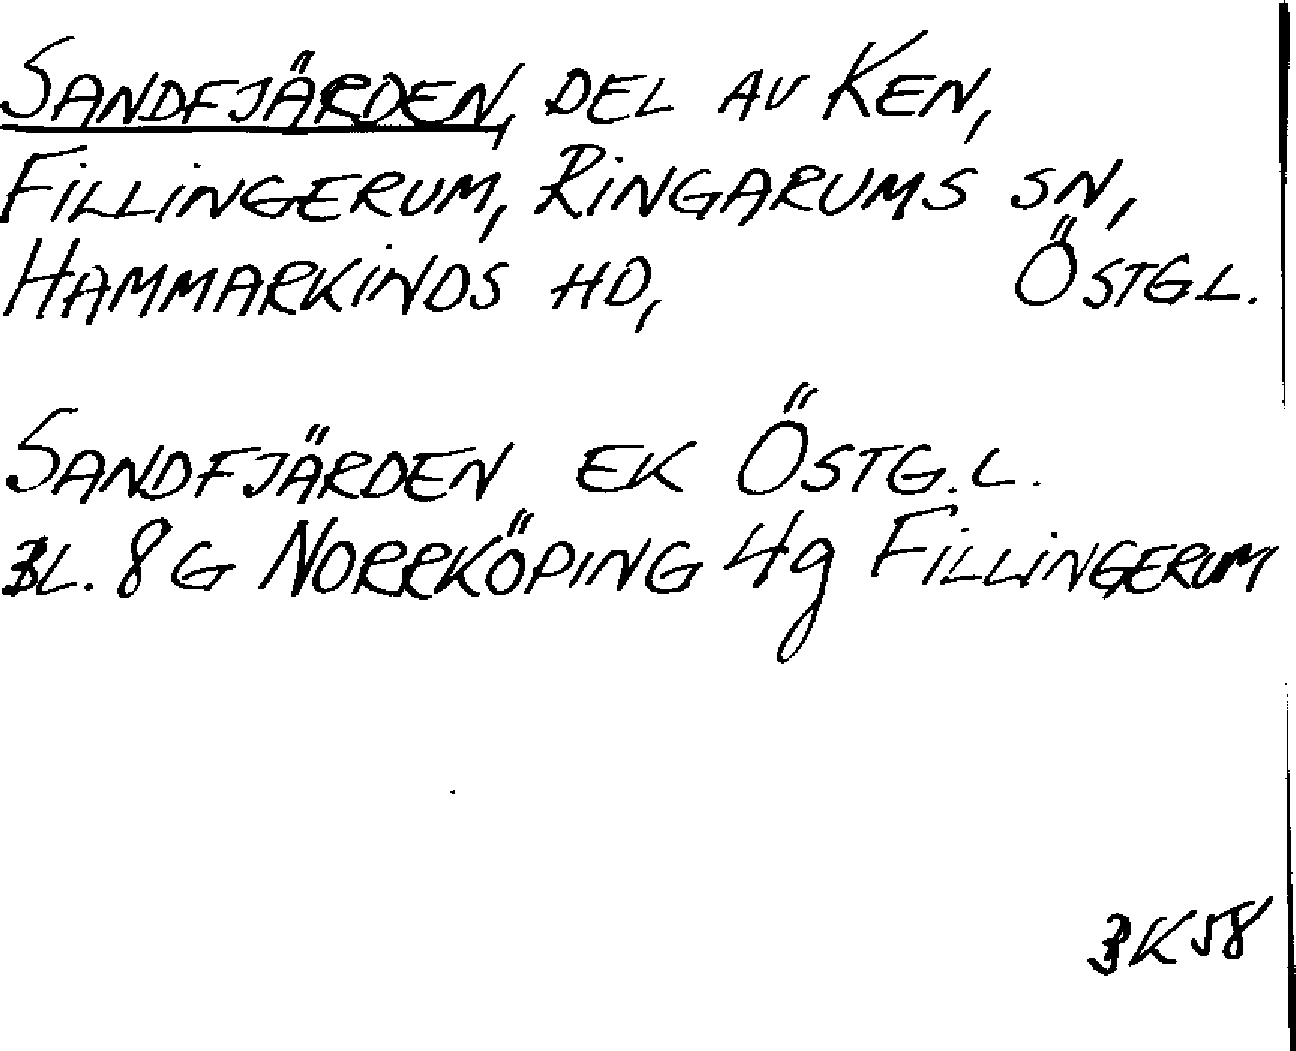 SANDFJÄRDEN, DEL AV KEN,
FILLINGERUM, RINGARUMS SN,
HAMMARKINDS HD, ÖSTGL.
SANDFJÄRDEN EK ÖSTG.L.
BL. 8G NORRKÖPING 4g FILLINGERUM
BK58